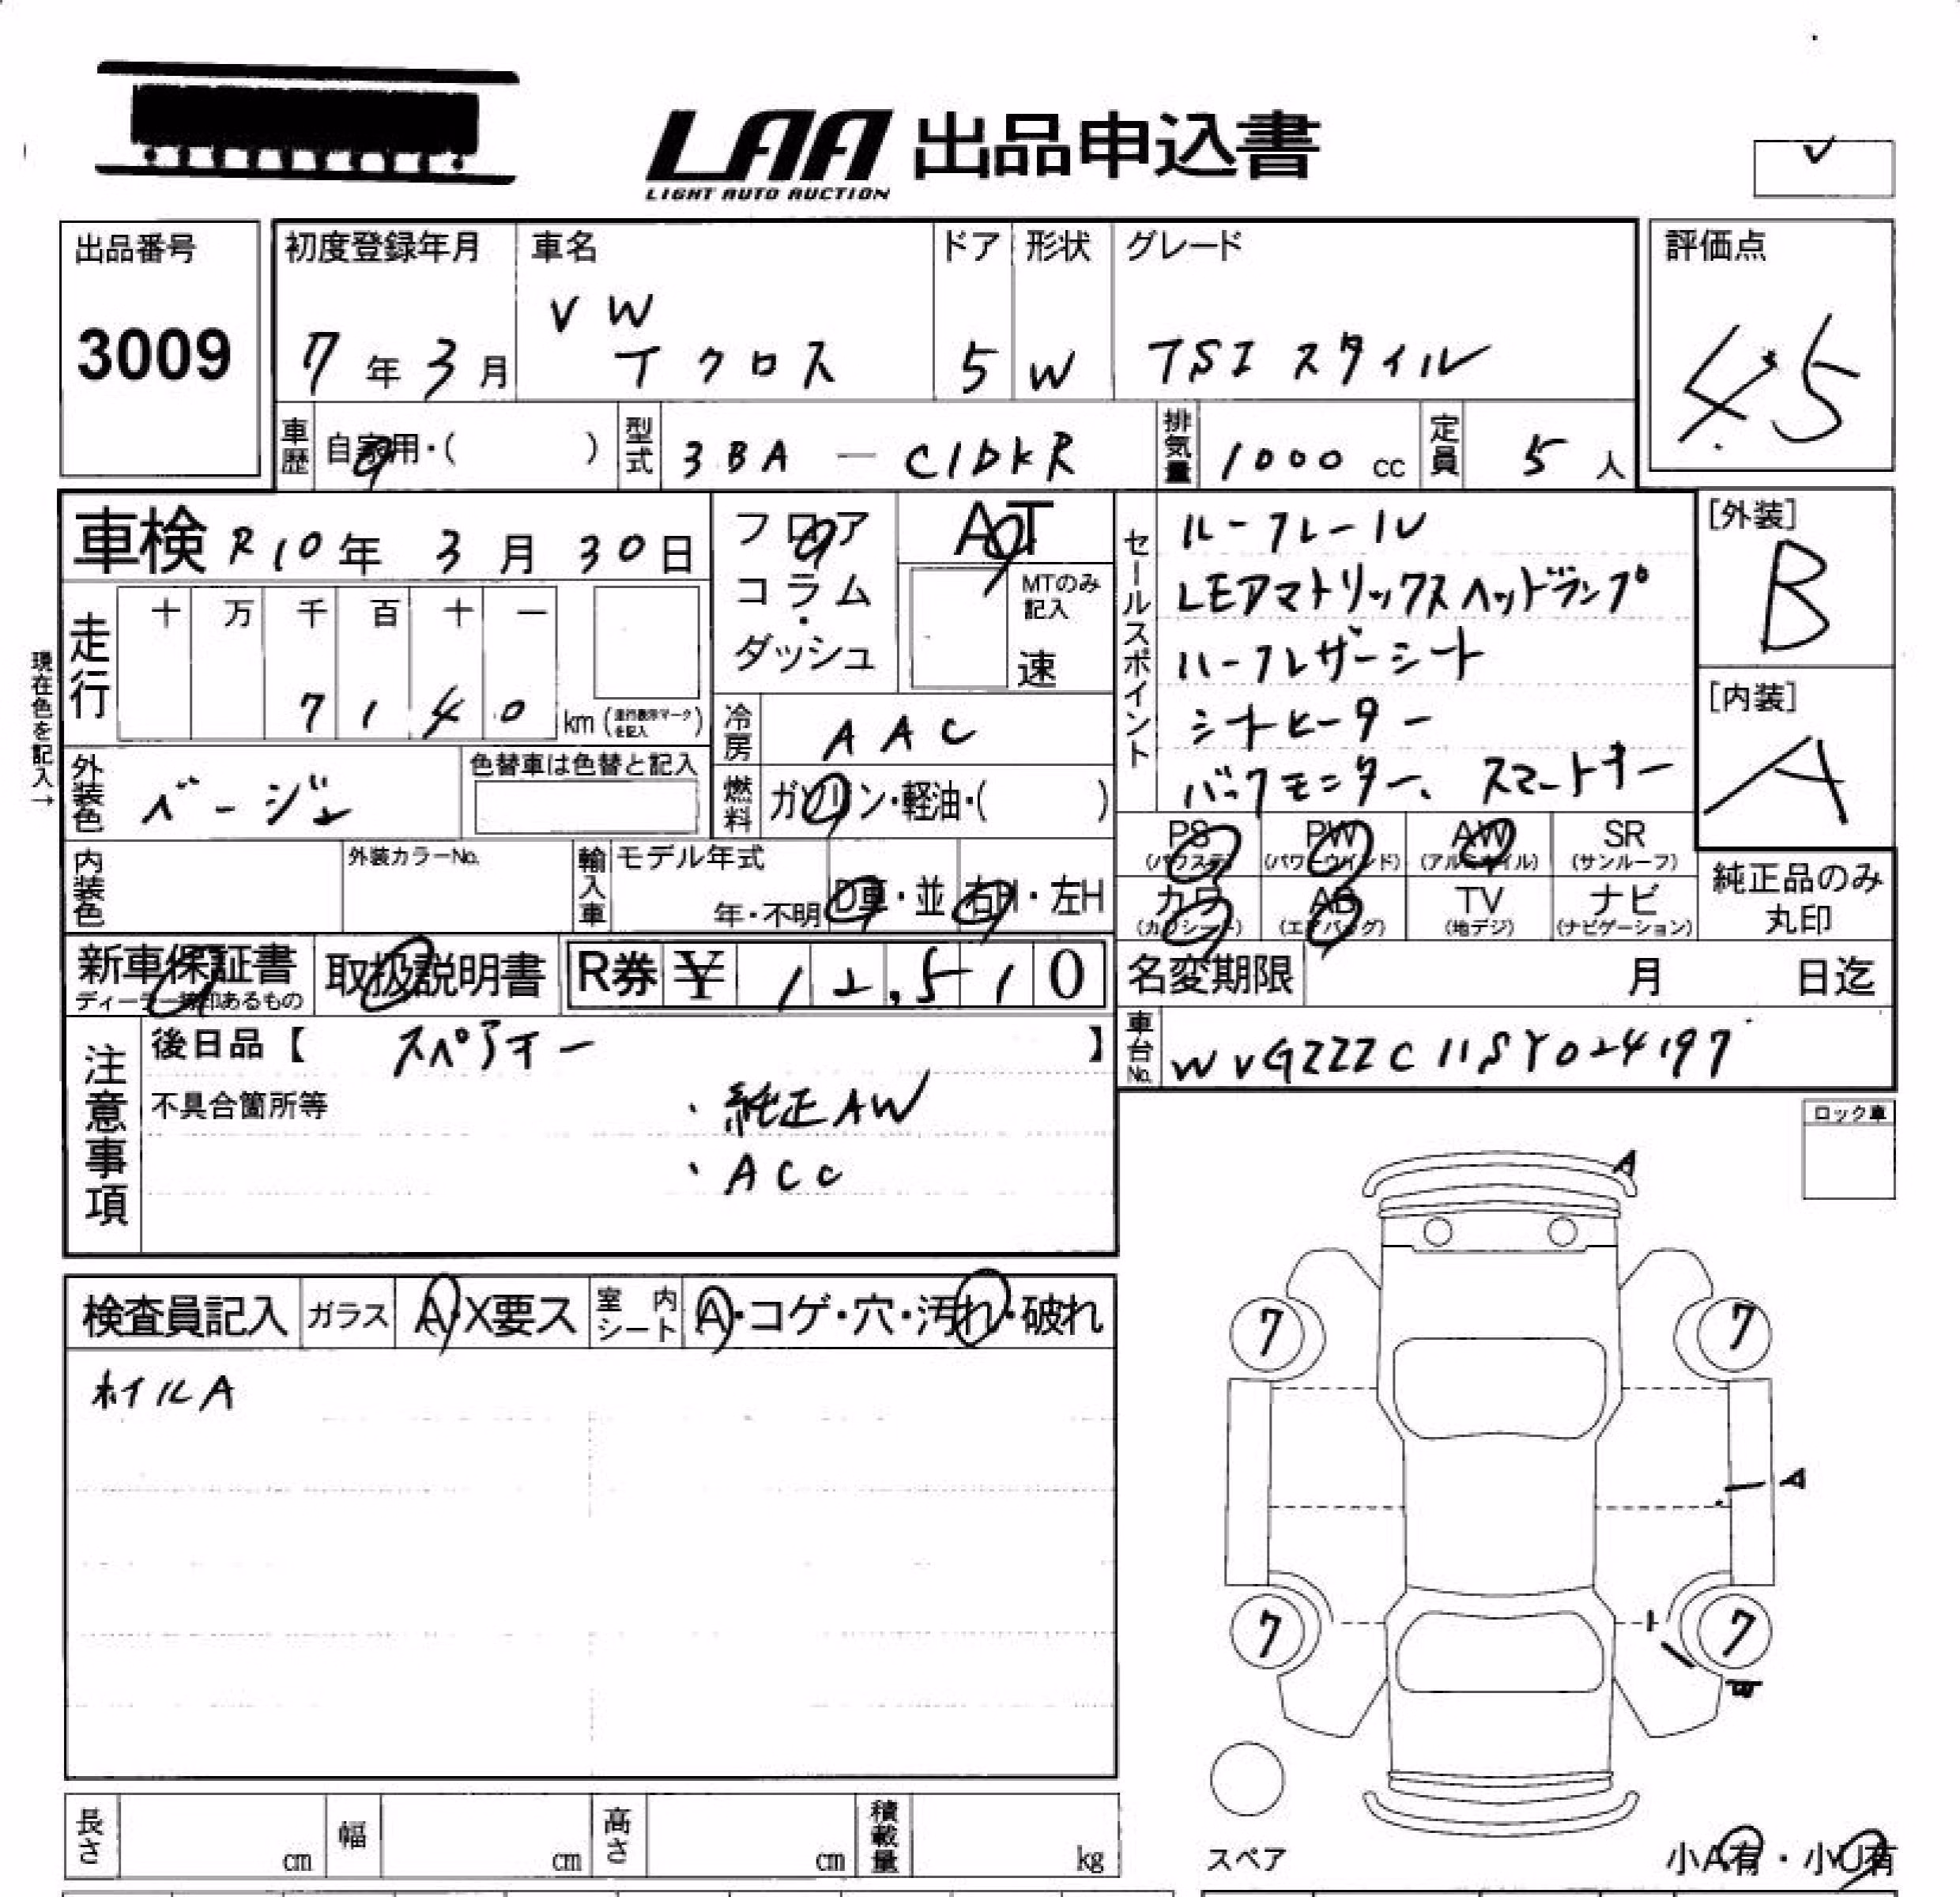 LAA 出品申込書
LIGHT AUTO AUCTION
出品番号
3009
初度登録年月
7年3月
車名
VW
Tクロス
ドア
5
形状
W
グレード
TSI スタイル
評価点
4.5
車歴 自家用・( )
型式 3BA — C1DKR
排気量 1000 cc
定員 5 人
車検 R10年 3月 30日
現在色を記入→
走行
十 万 千 百 十 一
7 1 4 0 km (走行表示マークを記入)
フロア
コラム
・
ダッシュ
AT
MTのみ記入
速
冷房 AAC
燃料 ガソリン・軽油・( )
外装色 ベージュ
色替車は色替と記入
内装色
外装カラーNo.
輸入車
モデル年式
年・不明
D車・並
右H・左H
セールスポイント
ルーフレール
LEDマトリックスヘッドランプ
ハーフレザーシート
シートヒーター
バックモニター、スマートキー
[外装]
B
[内装]
A
PS (パワステ)
PW (パワーウインド)
AW (アルミホイル)
SR (サンルーフ)
カワ (カワシート)
AB (エアバッグ)
TV (地デジ)
ナビ (ナビゲーション)
純正品のみ
丸印
新車保証書
ディーラー捺印あるもの
取扱説明書
R券 ¥ 12,510
名変期限 月 日迄
車台No. WVGZZZC11SY024197
注意事項
後日品【 スペアキー 】
不具合箇所等
・純正AW
・ACC
ロック車
検査員記入
ガラス A・X要ス
室内シート A・コゲ・穴・汚れ・破れ
ホイルA
A
7
7
A
7
7
スペア
小A有・小U有
長さ cm
幅 cm
高さ cm
積載量 kg